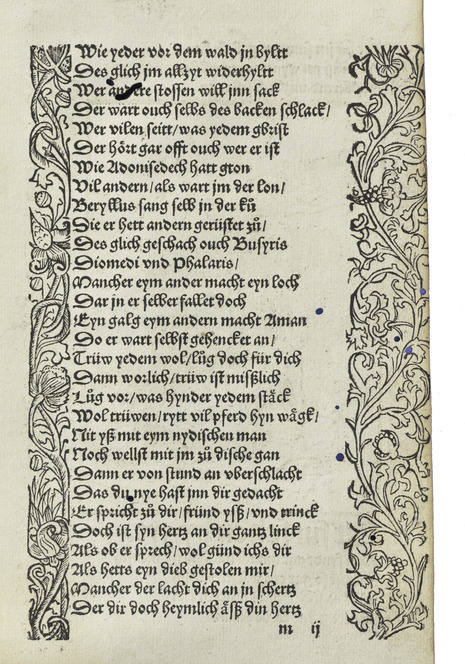 Wie yeder vor dem wald jn byltt
Des glich jm allzyt widerhyltt
Wer andere stossen will jnn sack
Der wart ouch selbs des backen schlack/
Wer vilen seitt/was yedem gbrist
Der hört gar offt ouch wer er ist
Wie Adonisedech hatt gton
Vil andern/als wart jm der lon/
Beryllus sang selb jn der kü
Die er hett andern gerüster zů/
Des glich geschach ouch Busyris
Diomedi vnd Phalaris/
Mancher eym ander macht eyn loch
Dar jn er selber fallet doch
Eyn galg eym andern macht Aman
Do er wart selbst gehencket an/
Trüw yedem wol/lůg doch für dich
Dann worlich/trüw ist mißlich
Lůg vor/was hynder yedem stäck
Wol trüwen/rytt vil pferd hyn wägk/
Nit yß mit eym nydischen man
Noch wellst mit jm zů dische gan
Dann er von stund an vberschlacht
Das du nye hast jnn dir gedacht
Er spricht zů dir/fründ ysß/vnd trinck
Doch ist syn hertz an dir gantz linck
Als ob er sprech/wol günd ichs dir
Als hetts eyn dieb gestolen mir/
Mancher der lacht dich an jn schertz
Der dir doch heymlich äsß din hertz
m ij